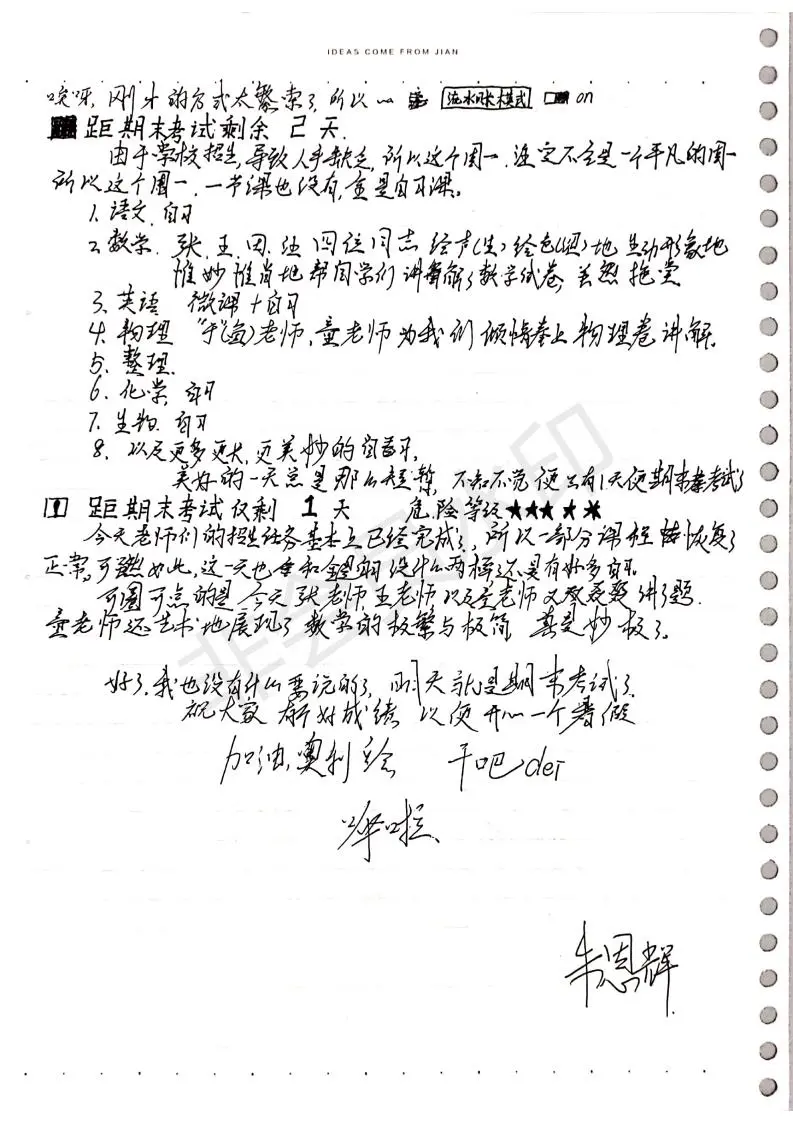 IDEAS COME FROM JIAN
哎呀,刚才的方式太繁索了,所以~ 流水账模式 on
距期末考试剩余 2 天.
由于学校招生,导致人手缺乏,所以这个周一,注定不会是一个平凡的周一
所以这个周一,一节课也没有,全是自习课。
1. 语文.自习
2. 数学. 张.王.田.伍 四位同志 绘声(生)绘色()地 生动形象地
惟妙惟肖地 帮同学们 讲解了数学试卷, 虽然拖堂
3. 英语 微课+自习
4. 物理 "于"()老师,童老师为我们倾情奉上物理卷讲解.
5. 整理.
6. 化学, 自习
7. 生物. 自习
8. 以及更多更大,更美妙的自习,
美好的一天总是那么短暂, 不知不觉便只有1天便期末考试了
! 距期末考试仅剩 1 天 危险等级★★★★★
今天老师们的招生任务基本上已经完成了, 所以一部分课程恢复了
正常,可虽如此,这一天也没什么两样,还是有好多自习.
可圈可点的是 今天 张老师,王老师以及童老师又讲了题.
童老师还艺术地展现了 数学的极繁与极简 真是妙极了。
好了.我也没有什么要说的了, 明天就是期末考试了.
祝大家 有个好成绩 以便开心一个暑假
加油,奥利给 干吧der
毕啦
朱恩辉
非会员水印